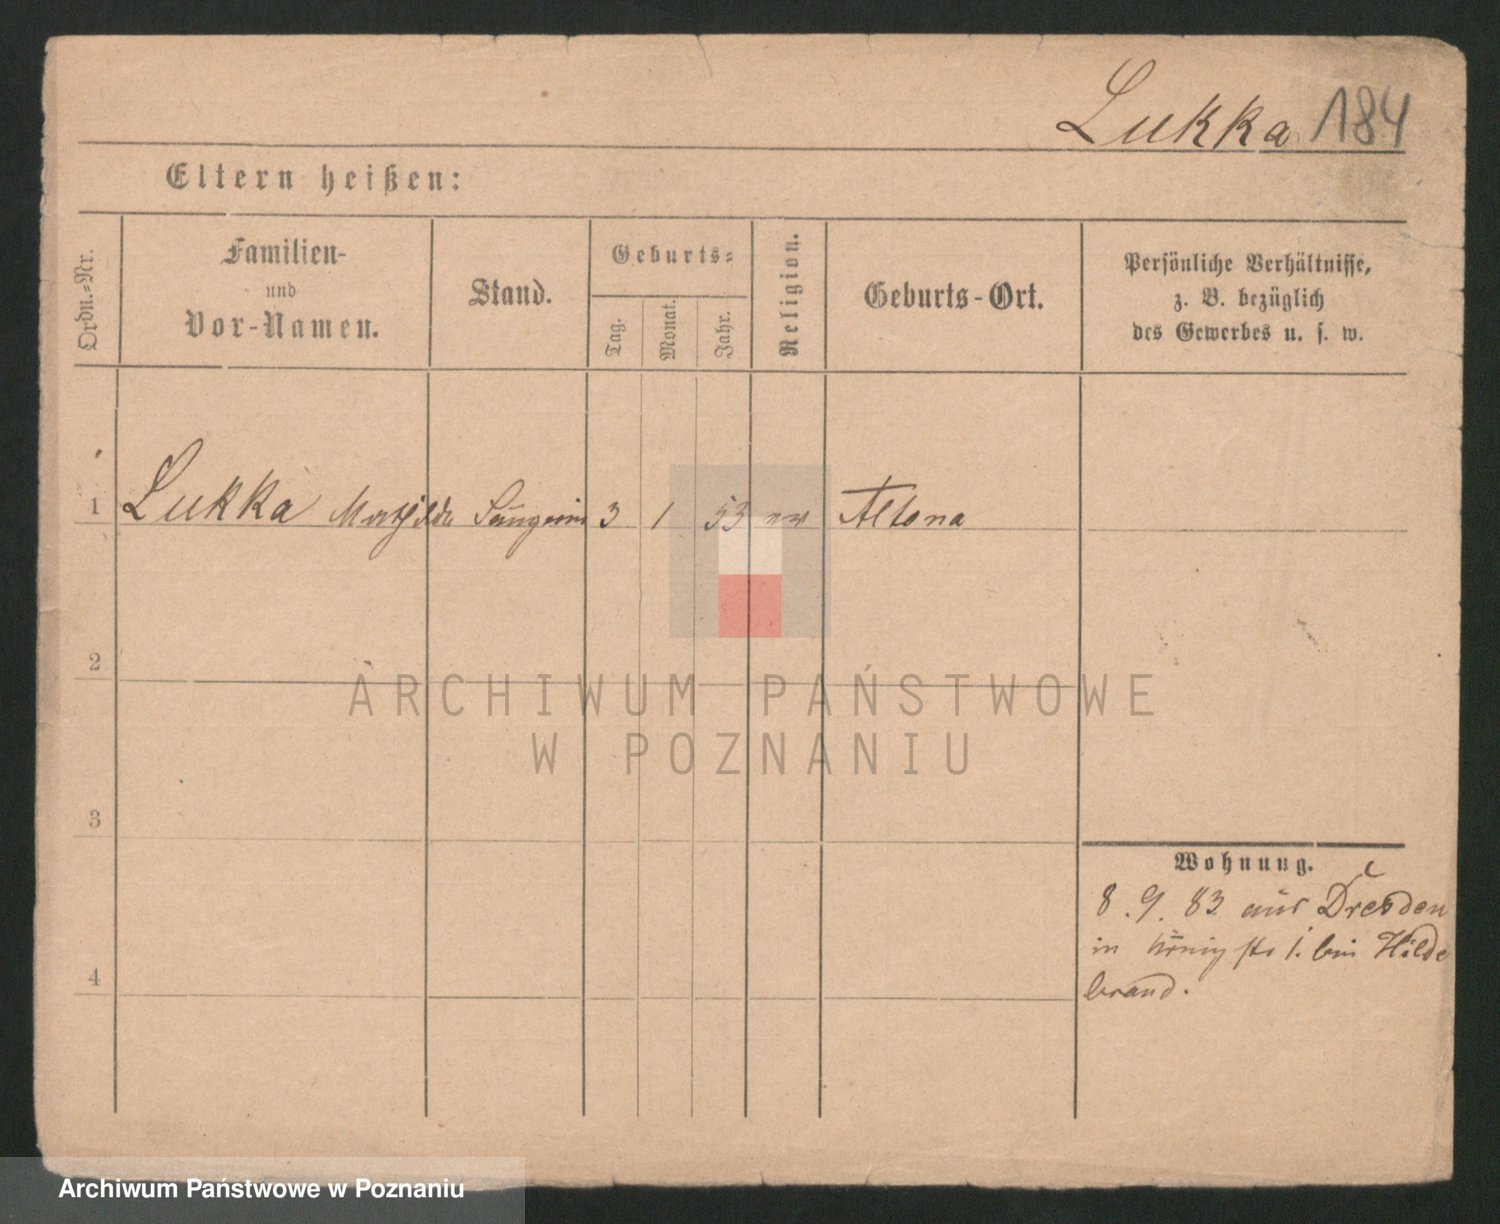 Lukka 184
Eltern heißen:
Ordn.=Nr.
Familien-
und
Vor-Namen.
Stand.
Geburts=
Tag.
Monat.
Jahr.
Religion.
Geburts-Ort.
Persönliche Verhältnisse,
z. B. bezüglich
des Gewerbes u. s. w.
1 Lukka Mathilde Sängerin 3 1 53 ev Altona
2
ARCHIWUM PAŃSTWOWE
W POZNANIU
3
Wohnung.
8. 9. 83 aus Dresden
in Königstr 1. bei Hilde
brand.
4
Archiwum Państwowe w Poznaniu